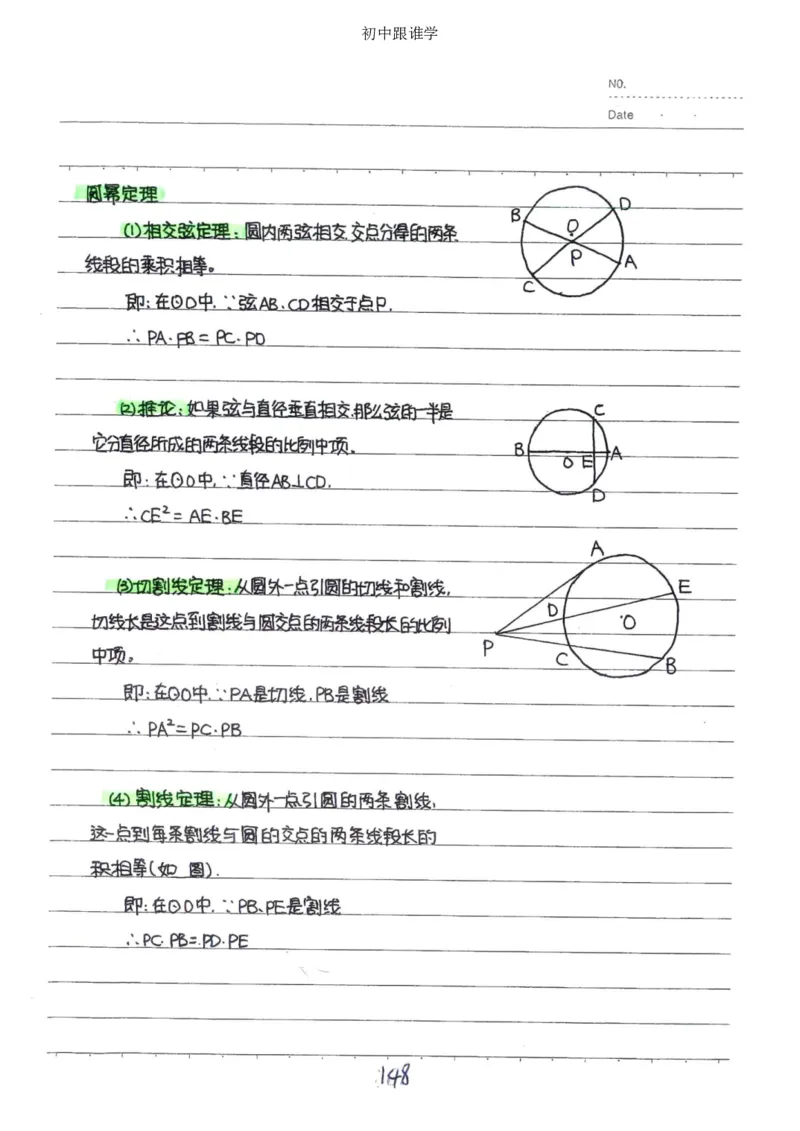 初中跟谁学
NO.
Date · ·
圆幂定理
(1)相交弦定理:圆内两弦相交,交点分得的两条
线段的乘积相等。
即:在⊙O中,∵弦AB、CD相交于点P,
∴PA·PB=PC·PD
B
D
O
P
A
C
(2)推论:如果弦与直径垂直相交,那么弦的一半是
它分直径所成的两条线段的比例中项。
即:在⊙O中,∵直径AB⊥CD,
∴CE²=AE·BE
C
B
O
E
A
D
(3)切割线定理:从圆外一点引圆的切线和割线,
切线长是这点到割线与圆交点的两条线段长的比例
中项。
即:在⊙O中,∵PA是切线,PB是割线
∴PA²=PC·PB
A
E
D
·O
P
C
B
(4)割线定理:从圆外一点引圆的两条割线,
这一点到每条割线与圆的交点的两条线段长的
积相等(如 图).
即:在⊙O中,∵PB、PE是割线
∴PC·PB=PD·PE
148